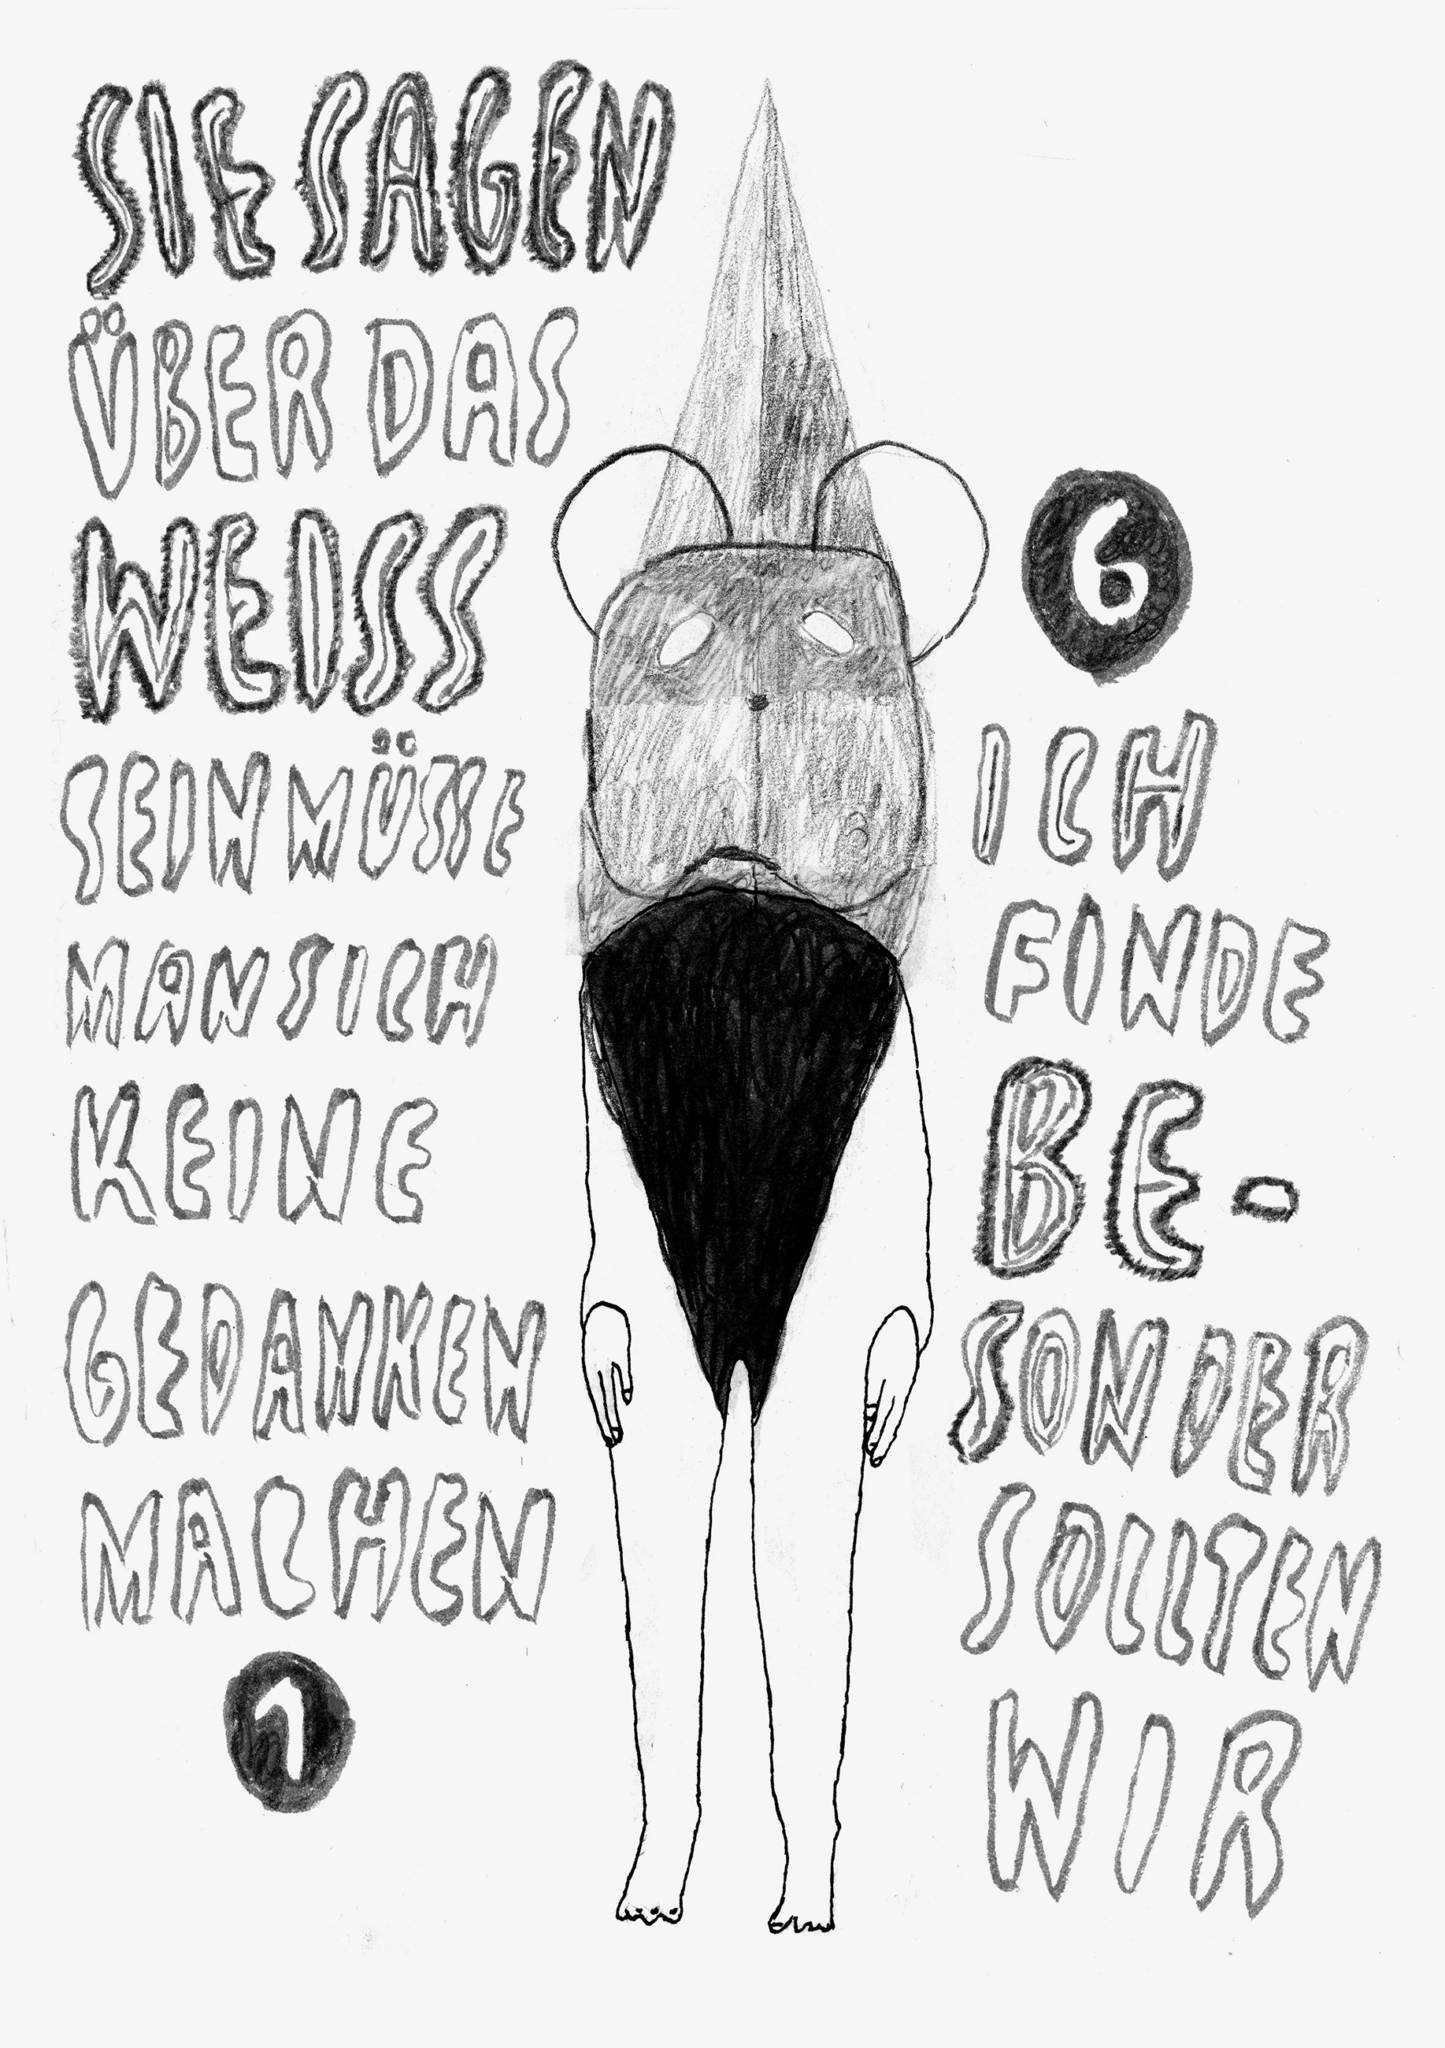 SIE SAGEN
ÜBER DAS
WEISS
SEIN MÜSSE
MAN SICH
KEINE
GEDANKEN
MACHEN
1
6
ICH
FINDE
BE-
SONDER
SOLLTEN
WIR